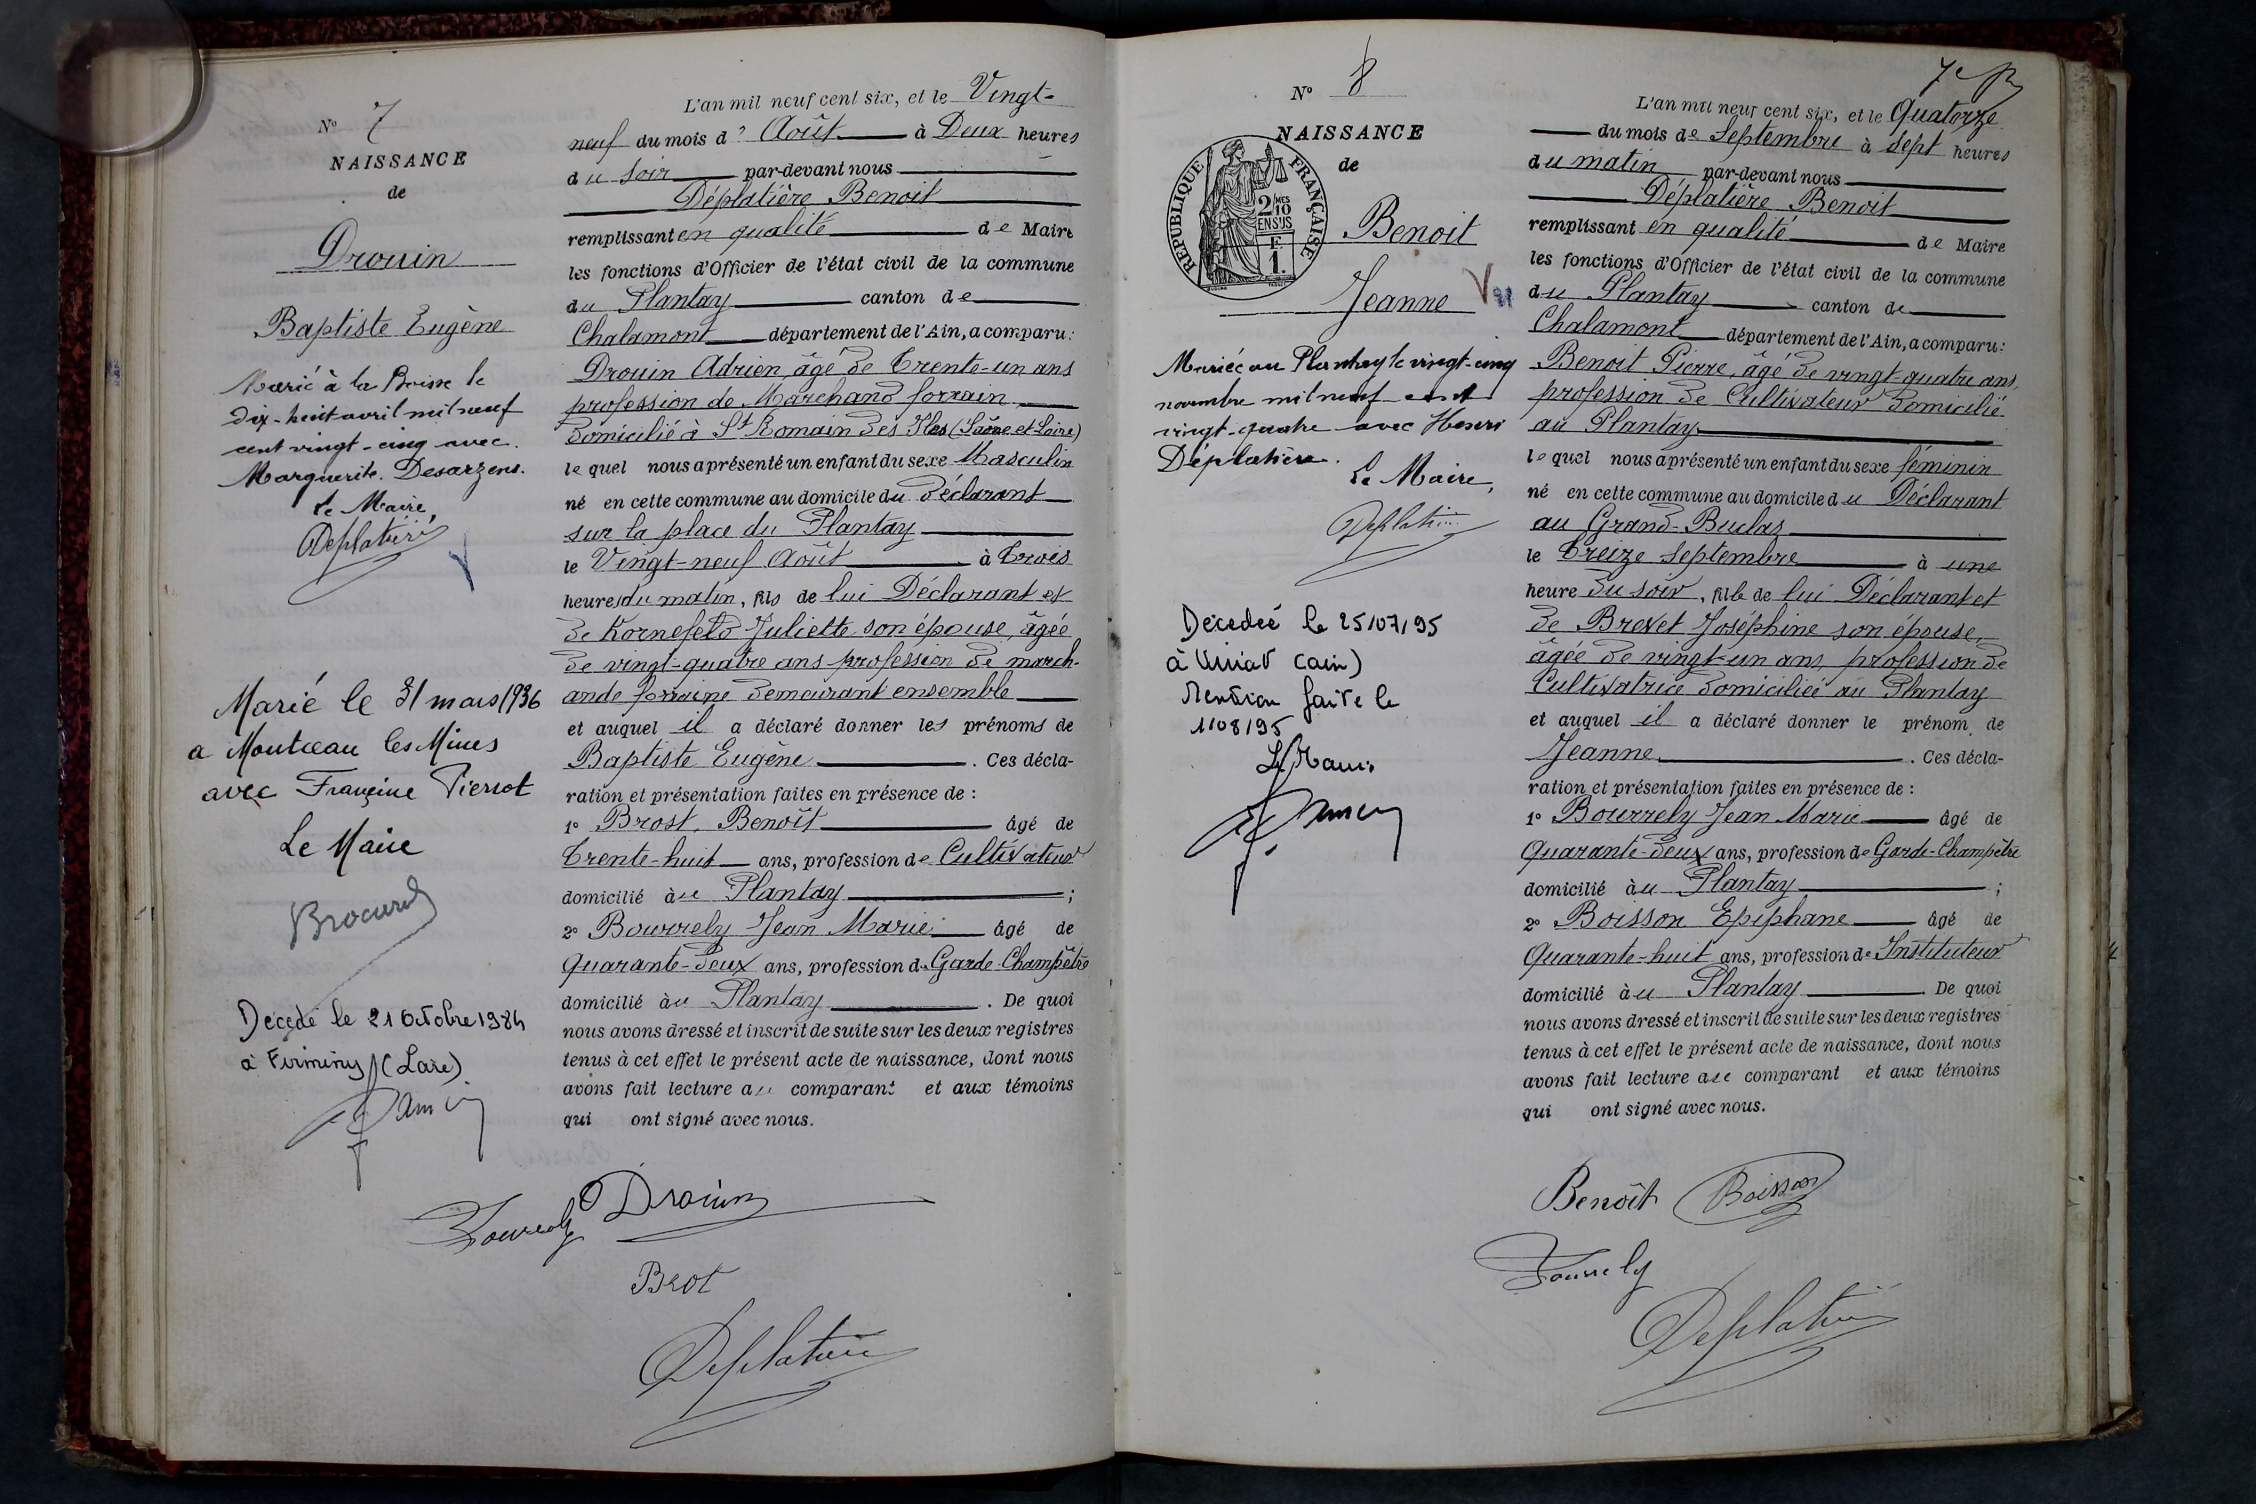 N° 7
NAISSANCE
de
Drouin
Baptiste Eugène
Marié à la Boisse le
dix-huit avril mil neuf
cent vingt-cinq avec
Marguerite Desarzens.
Le Maire,
Déplatière
Marié le 31 mars 1936
a Montceau les Mines
avec Françine Pierrot
Le Maire
Décédé le 21 Octobre 1984
à Firminy (Loire)
L'an mil neuf cent six, et le Vingt-
neuf du mois d' Août à Deux heures
du soir par-devant nous
Déplatière Benoit
remplissant en qualité de Maire
les fonctions d'Officier de l'état civil de la commune
du Plantay canton de
Chalamont département de l'Ain, a comparu:
Drouin Adrien, âgé de Trente-un ans
profession de Marchand forrain
domicilié à St Romain des Iles (Saône et Loire)
lequel nous a présenté un enfant du sexe Masculin
né en cette commune au domicile du déclarant
sur la place du Plantay
le Vingt-neuf Août à Trois
heures du matin, fils de lui Déclarant et
de Kornefeld Juliette son épouse, âgée
de vingt-quatre ans profession de march-
ande forraine demeurant ensemble
et auquel il a déclaré donner les prénoms de
Baptiste Eugène. Ces décla-
ration et présentation faites en présence de :
1° Brost, Benoît âgé de
Trente-huit ans, profession de Cultivateur
domicilié au Plantay ;
2° Bourrely Jean Marie âgé de
Quarante-deux ans, profession de Garde-Champêtre
domicilié au Plantay. De quoi
nous avons dressé et inscrit de suite sur les deux registres
tenus à cet effet le présent acte de naissance, dont nous
avons fait lecture au comparant et aux témoins
qui ont signé avec nous.
Bourrely Drouin
Brot
Déplatière
7e
N° 8
NAISSANCE
de
RÉPUBLIQUE FRANÇAISE
2/10 MES
EN SUS
F.
1.
Benoit
Jeanne
Vu
Mariée au Plantay le vingt-cinq
novembre mil neuf cent
vingt-quatre avec Henri
Déplatière.
Le Maire,
Déplatière
Décedeé le 25/07/95
à Viriat (ain)
Mention faite le
1/08/95
Le Maire
L'an mil neuf cent six, et le Quatorze
du mois de Septembre à sept heures
du matin par-devant nous
Déplatière Benoit
remplissant en qualité de Maire
les fonctions d'Officier de l'état civil de la commune
du Plantay canton de
Chalamont département de l'Ain, a comparu:
Benoit Pierre, âgé de vingt-quatre ans,
profession de Cultivateur domicilié
au Plantay
lequel nous a présenté un enfant du sexe féminin
né en cette commune au domicile du Déclarant
au Grand-Buclas
le Treize Septembre à une
heure du soir, fille de lui Déclarant et
de Brevet Joséphine son épouse,
âgée de vingt-un ans, profession de
Cultivatrice domiciliée au Plantay
et auquel il a déclaré donner le prénom de
Jeanne. Ces décla-
ration et présentation faites en présence de :
1° Bourrely Jean Marie âgé de
Quarante-deux ans, profession de Garde-Champêtre
domicilié au Plantay ;
2° Boisson Epiphane âgé de
Quarante-huit ans, profession de Instituteur
domicilié au Plantay. De quoi
nous avons dressé et inscrit de suite sur les deux registres
tenus à cet effet le présent acte de naissance, dont nous
avons fait lecture au comparant et aux témoins
qui ont signé avec nous.
Benoit Boisson
Bourrely
Déplatière